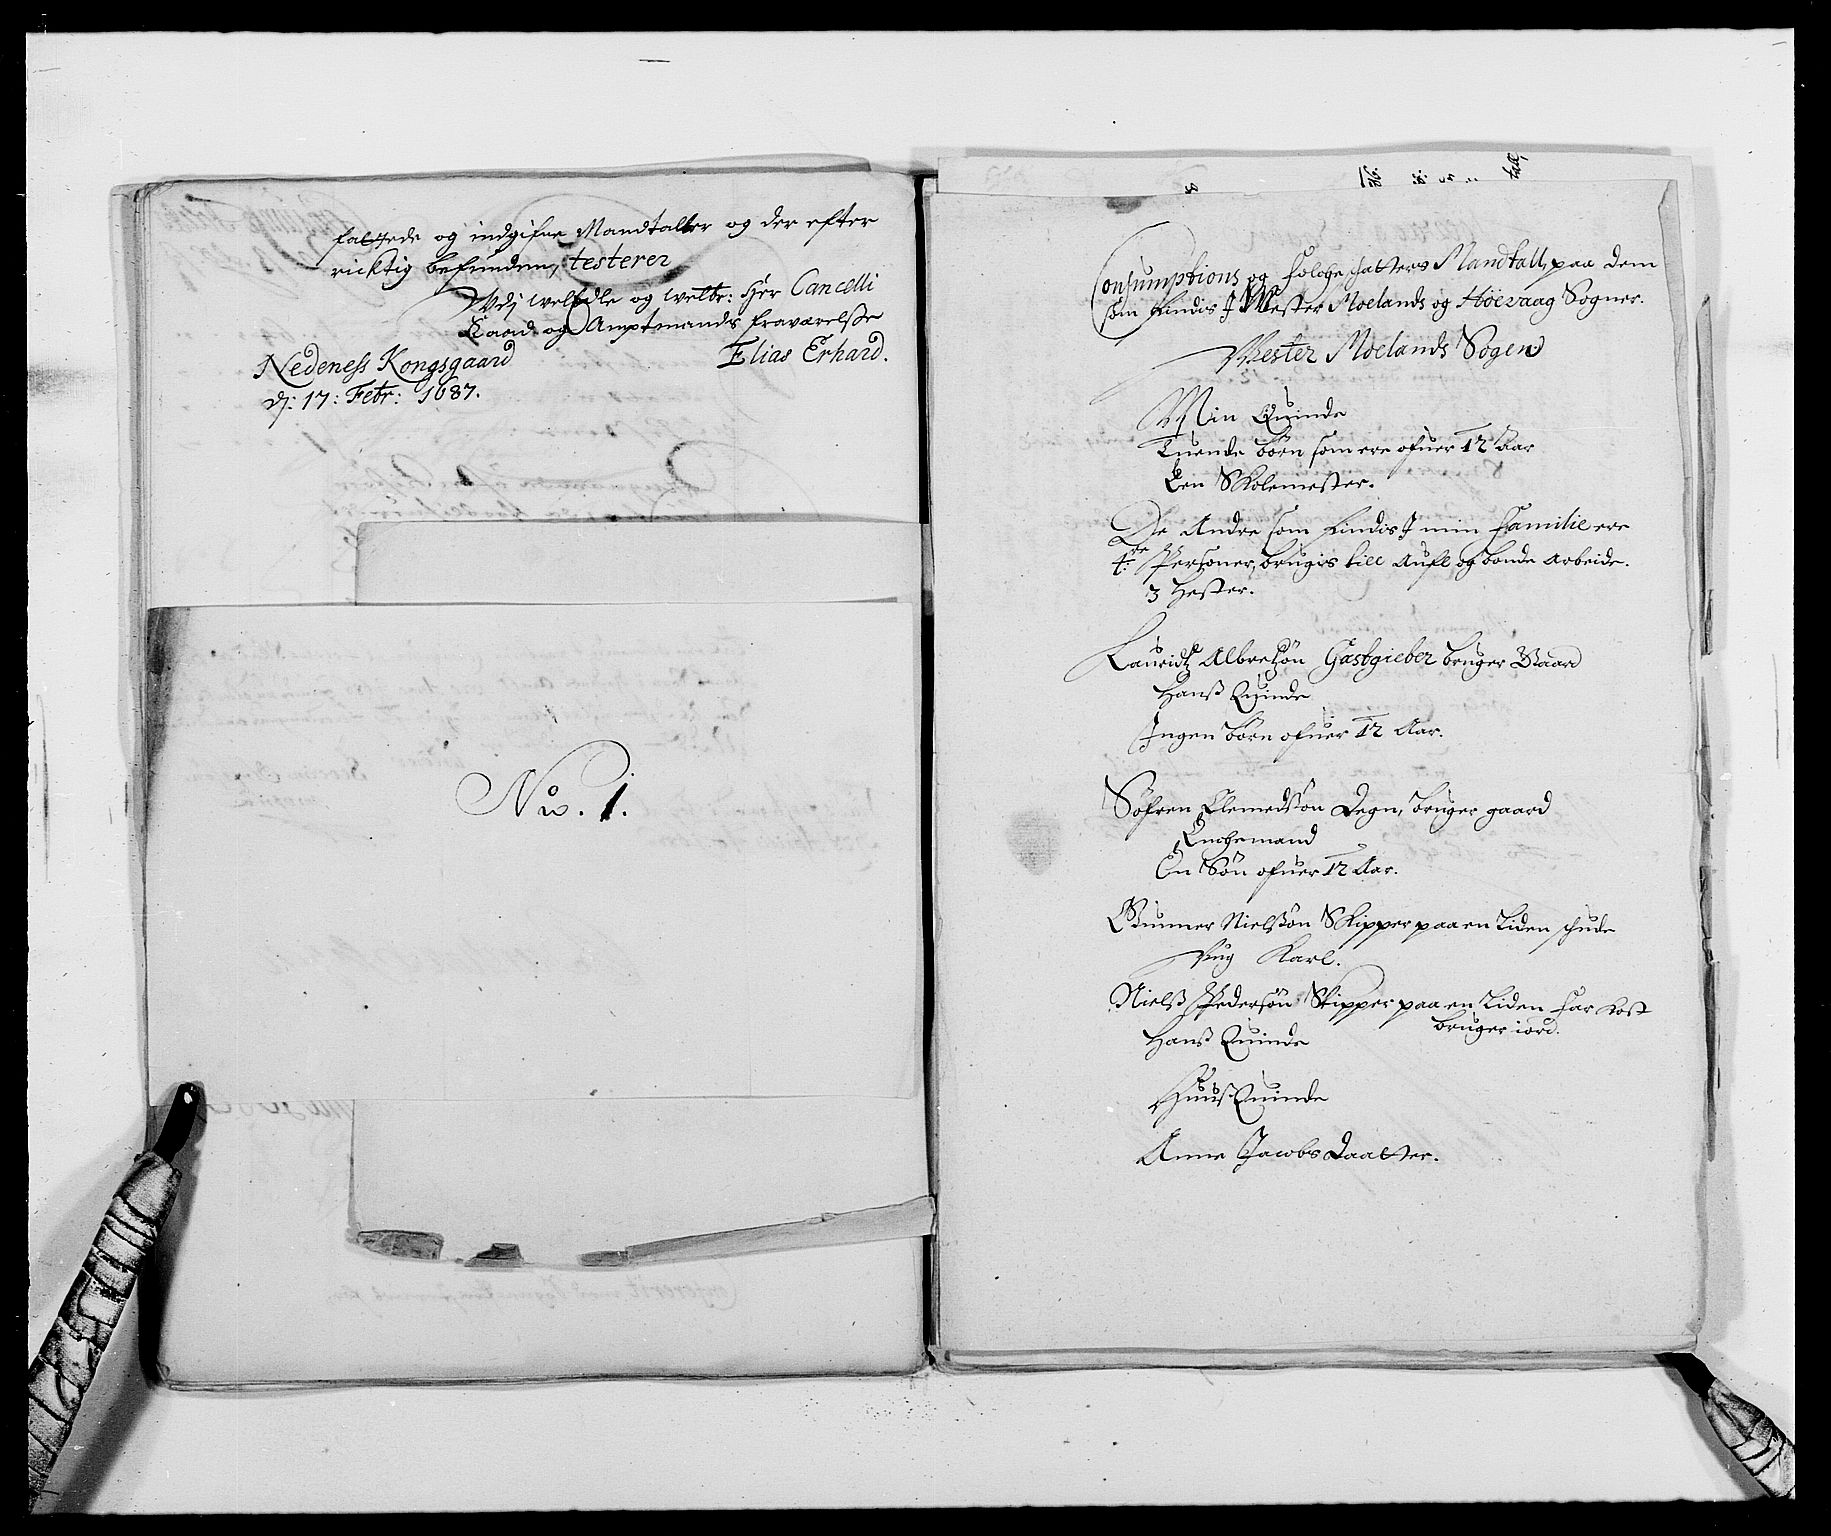 fattede og indgifne Mandtaller og der efter
ricktig befunden, testerer
Udj welEdle og welbr: Herr Cancelli
Raad og Amptmands fraværelsse
Elias Erhard.
Nedeness Kongsgaard
dj: 17: Febr: 1687.
No. 1.
Consumptions og Folcheskatters Mandtall, paa dem
som Findis J Wester Moelands og Höevaag Sogner.
Wester Moelands Sogen
Min Quinde
Tuende börn som ere ofuer 12 Aar
Een Skolemester.
De Andre som Findis J min Familie ere
4re Personer, brugis till Aufl og bonde Arbeide.
3 Hester.
Lauridtz Albretzön Gastgieber bruger Gaard
Hanß Quinde
Ingen börn ofuer 12 Aar.
Söfren Clemedsön Degn, bruger gaard
Enchemand
En Sön ofuer 12 Aar.
Gunner Nielßön Skipper paa en Liden schude
Ung Karl.
Nielß Pedersön Skipper paa en Liden Far kost
bruger iord.
Hanß Quinde
HuußQuinde
Anne JacobsDaatter.